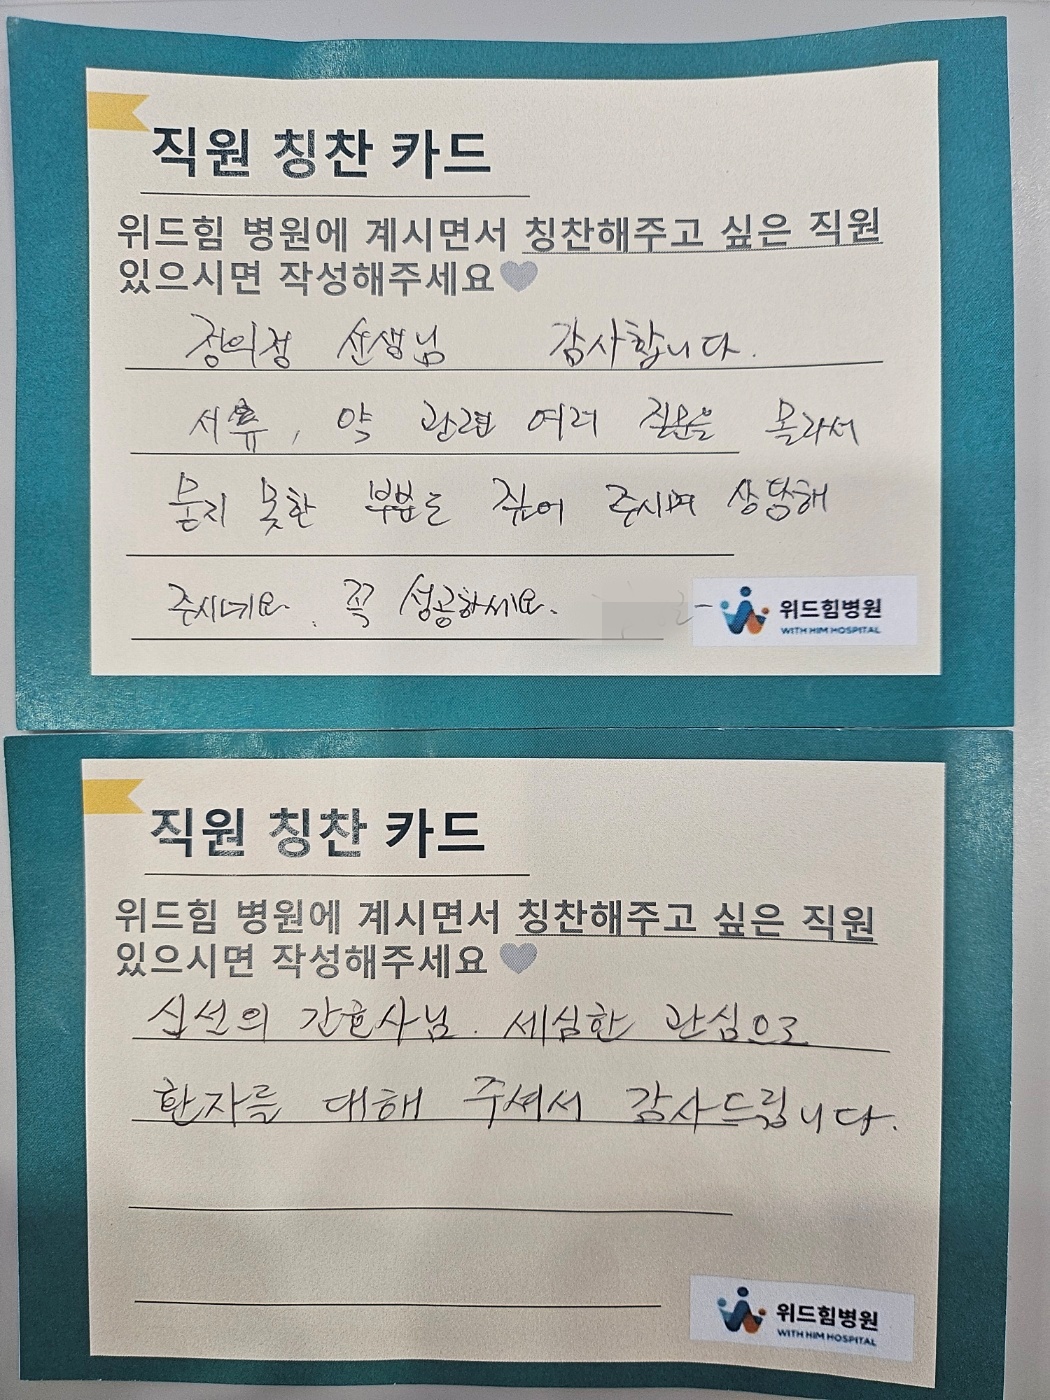 직원 칭찬 카드
위드힘 병원에 계시면서 칭찬해주고 싶은 직원
있으시면 작성해주세요
정의정 선생님 감사합니다.
서류, 약 관련 여러 질문을 몰라서
묻지 못한 부분도 짚어 주시며 상담해
주시네요. 꼭 성공하세요.
위드힘병원
WITH HIM HOSPITAL
직원 칭찬 카드
위드힘 병원에 계시면서 칭찬해주고 싶은 직원
있으시면 작성해주세요
신선의 간호사님. 세심한 관심으로
환자를 대해 주셔서 감사드립니다.
위드힘병원
WITH HIM HOSPITAL